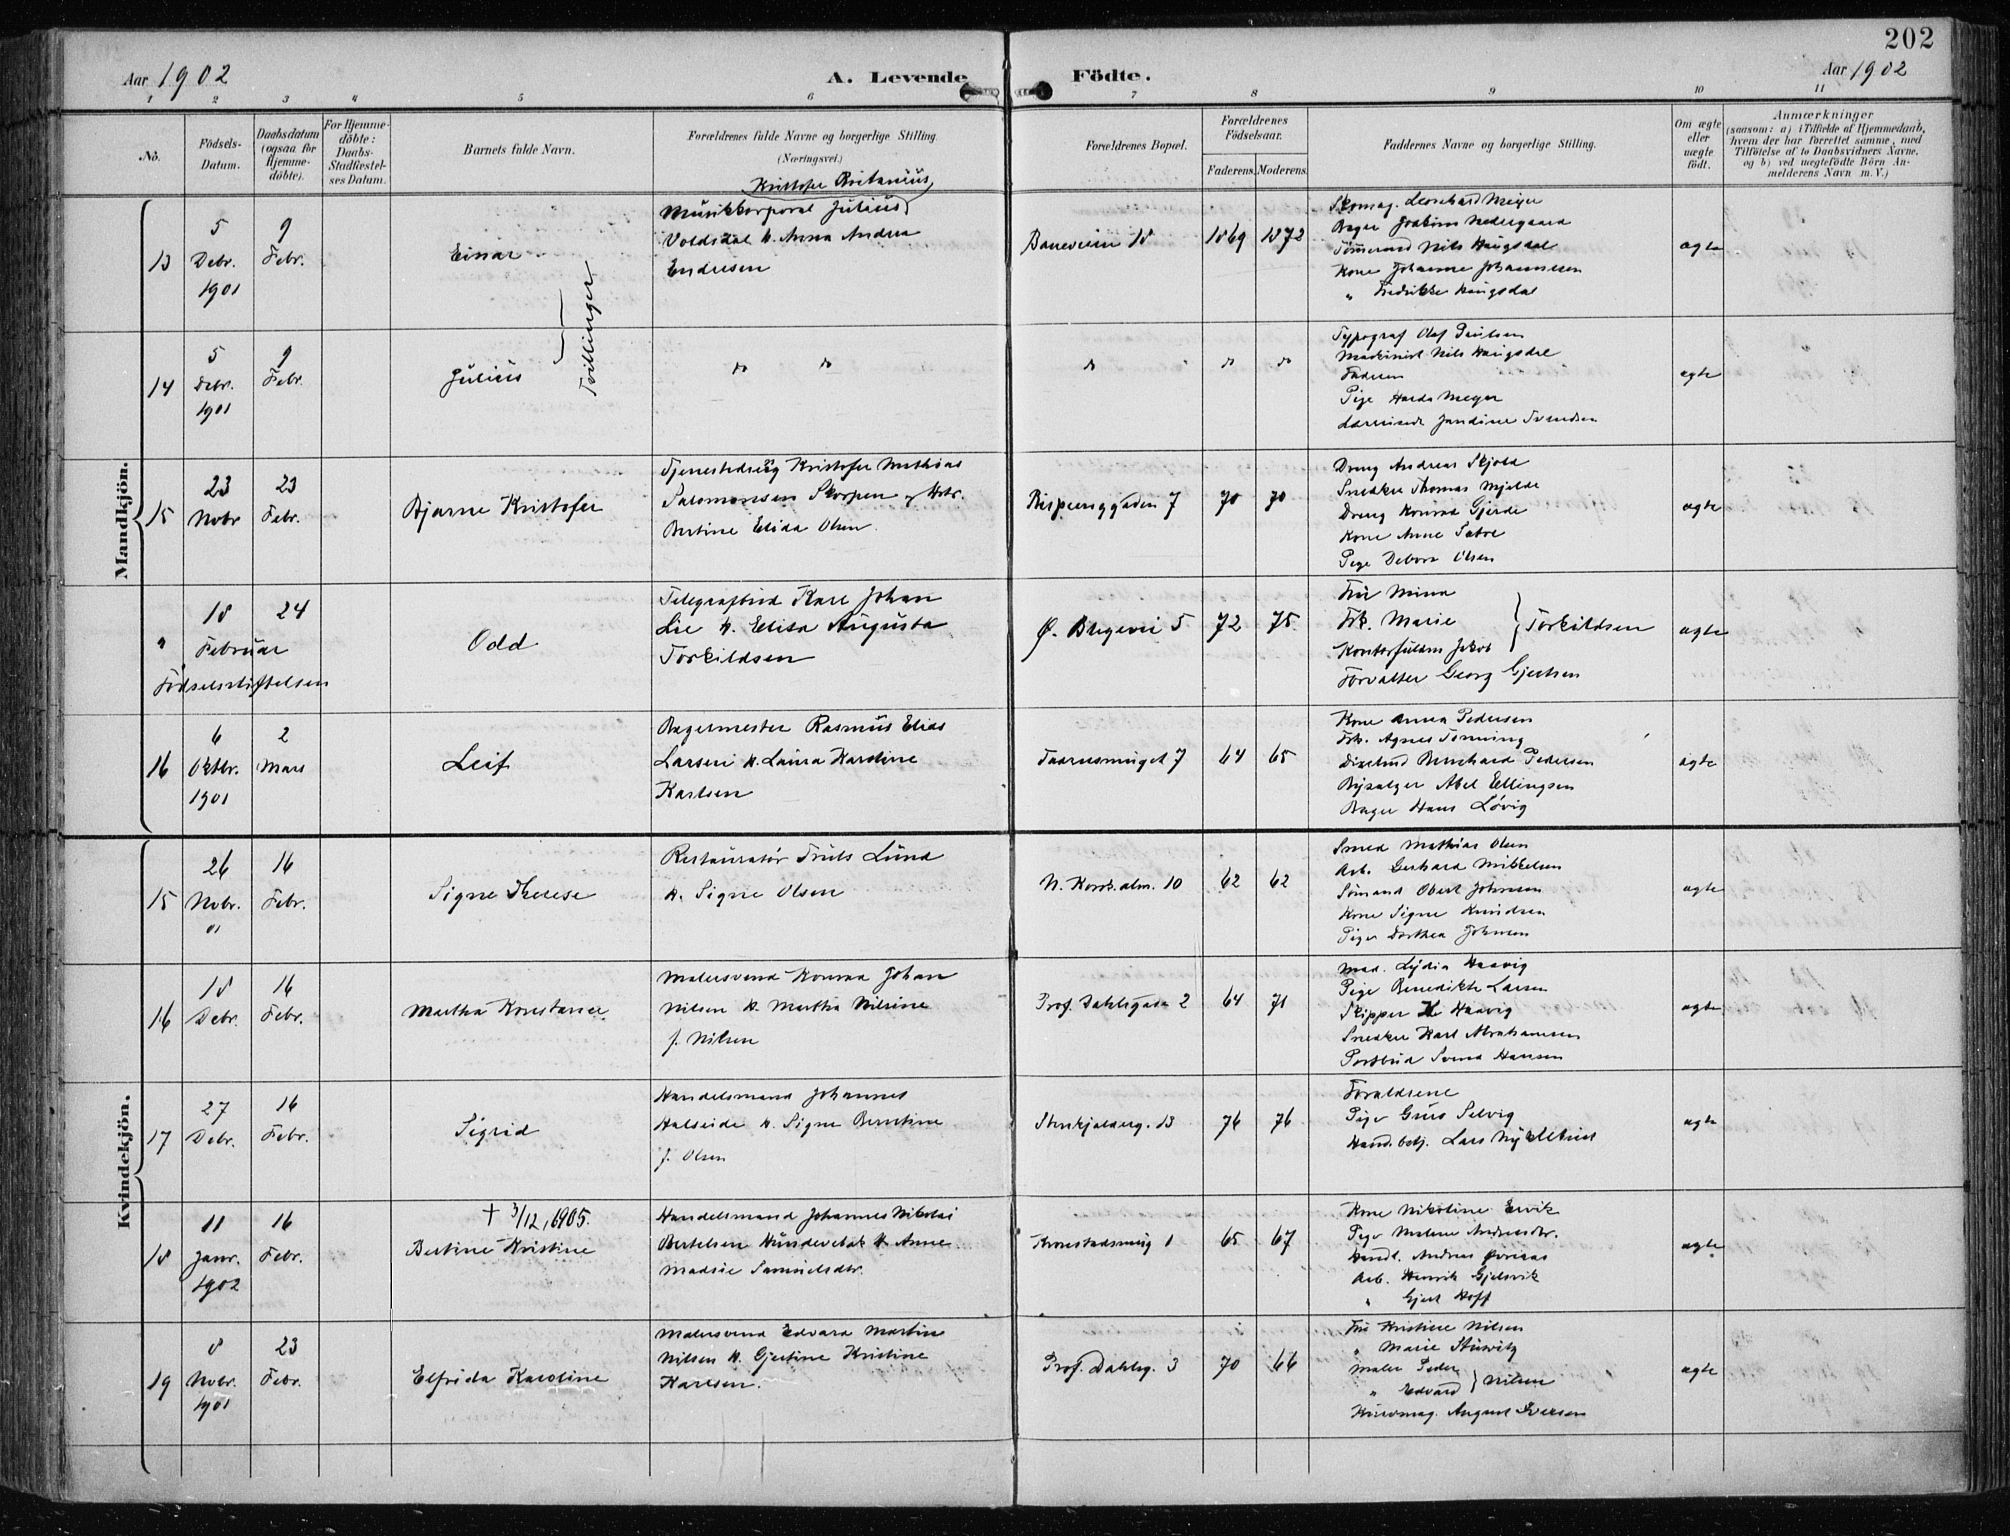 202
Aar 1902
A. Levende Födte.
Aar 1902
1 2 3 4 5 6 7 8 9 10 11
No.
Födsels-Datum.
Daabsdatum (ogsaa for Hjemme-döbte).
For Hjemme-döbte: Daabs-Stadfæstel-ses Datum.
Barnets fulde Navn.
Forældrenes fulde Navne og borgerlige Stilling.
(Næringsvei.)
Forældrenes Bopæl.
Forældrenes Födselsaar.
Faderens. Moderens.
Faddernes Navne og borgerlige Stilling.
Om ægte eller uægte födt.
Anmærkninger
(saasom: a) i Tilfælde af Hjemmedaab,
hvem der har forrettet samme, med
Tilföielse af to Daabsvidners Navne,
og b) ved uægtefödte Börn An-
melderens Navn m. V.)
Mandkjön.
13
5 Debr. 1901
9 Febr.
Einar
Tvillinger
Kristofer Britanius
Musikkorporal Julius
Voldsdal h. Anna Andrea
Endresen
Baneveien 18
1869 1872
Skomag. Leonhard Meyer
Bager Joakim Nedergaard
Tömmermd Nils Haugsdal
Kone Johanne Johannesen
" Fredrikke Haugsdal
ægte
14
5 Debr. 1901
9 Febr.
Julius
do do
do
do do
Typograf Olaf Paulsen
Maskinist Nils Haugsdal
Faderen
Pige Harda Meyer
Jandine Svendsen
ægte
15
23 Nobr
23 Febr.
Bjarne Kristofer
Tjenestedreng Kristofer Mathias
Salomonsen Skorpen og Hstr.
Bertine Elida Olsen.
Bispenggaden 7
70 70
Dreng Andreas Skjold
Snedker Thomas Mjelde
Dreng Konrad Gjerde
Kone Anne Sætre
Pige Debora Olsen
ægte
"
18 24
Februar
Fødselsstiftelsen
Odd
Telegrafbud Karl Johan
Lie h. Elisa Augusta
Torkildsen
Ø. Blegevei 5
72 75.
Fru Mina
Frk. Marie } Torkildsen
Kontorfuldm Jakob
Forvalter Georg Gjertsen
ægte
16
6 Oktbr. 1901
2 Mars
Leif
Bagermester Rasmus Elias
Larsen h. Laura Karoline
Karlsen
Taarnsmuget 7
64 65
Kone Anna Pedersen
Frk. Agnes Tenning
Bernhard Pedersen
Bysælger Abel Ellingsen
Bager Hans Løvig
ægte
Kvindekjön.
15
26 Nobr. 01
16 Febr.
Signe Therese
Restauratør Truls Lund
h. Signe Olsen
N. Korsk.alm. 10
62 62
Smed Mathias Olsen
Arb. Gerhard Mikkelsen
Sømand Obert Johnsen
Kone Signe Knudsen
Pige Dorthea Johnsen
ægte
16
18 Debr.
16 Febr.
Martha Konstance
Malersvend Konrad Johan
Nilsen h. Martha Nilsine
f. Nilsen
Prof. Dahlsgade 2
64 71
Mad. Lydia Haavig
Pige Benedikte Larsen
Skipper K Haavig
Snedker Karl Abrahamsen
Postbud Svend Hansen
ægte
17
27 Debr.
16 Febr.
Sigrid
Handelsmand Johannes
Halseide h. Signe Berntine
f. Olsen
Stenkjælderg. 13
76 76
Forældrene
Pige Guro Selvig
Handsbetj. Lars Nykletveit
ægte
18
11 Janr. 1902
16 Febr.
† 3/12, 1905.
Bertine Kristine
Handelsmand Johannes Nikolai
Bertelsen Hundevebak h. Anne
Madsie Samuelsdtr.
Kronstadsmug 1
65 67
Kone Nikoline Ervik
Pige Malene Andreasdtr.
Handl. Andreas Øvreaas
Arb. Henrik Gjelsvik
" Gjert Hoff
ægte
19
8 Nobr. 1901
23 Febr.
Elfrida Karoline
Malersvend Edvard Martin
Nilsen h. Gjertine Kristine
Karlsen.
Prof. Dahlsg. 3
70 66
Fru Kristine Nilsen
" Marie Sturvitz
Maler Peder
" Edvard } Nilsen
August Iversen
ægte